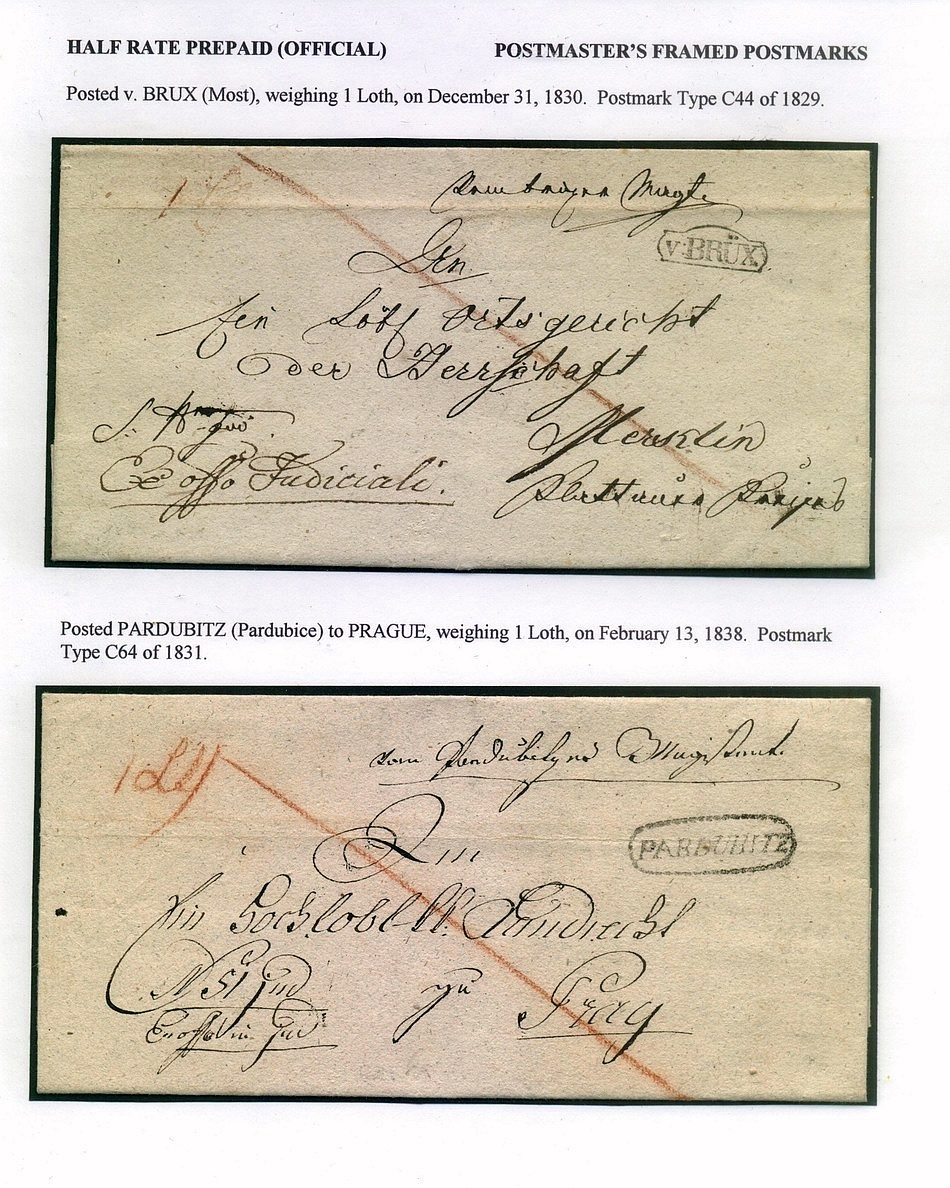 HALF RATE PREPAID (OFFICIAL) POSTMASTER'S FRAMED POSTMARKS
Posted v. BRUX (Most), weighing 1 Loth, on December 31, 1830. Postmark Type C44 of 1829.
v. BRÜX
An
Ein Löbl Ortsgericht
der Herrschaft
Merklin
Ex offo Judiciali.
Posted PARDUBITZ (Pardubice) to PRAGUE, weighing 1 Loth, on February 13, 1838. Postmark
Type C64 of 1831.
1 Lth
vom Pardubitzer Magistrat
PARDUBITZ
An
Ein Hochlobl. kk. Landrecht
N 51 jud
zu
Prag